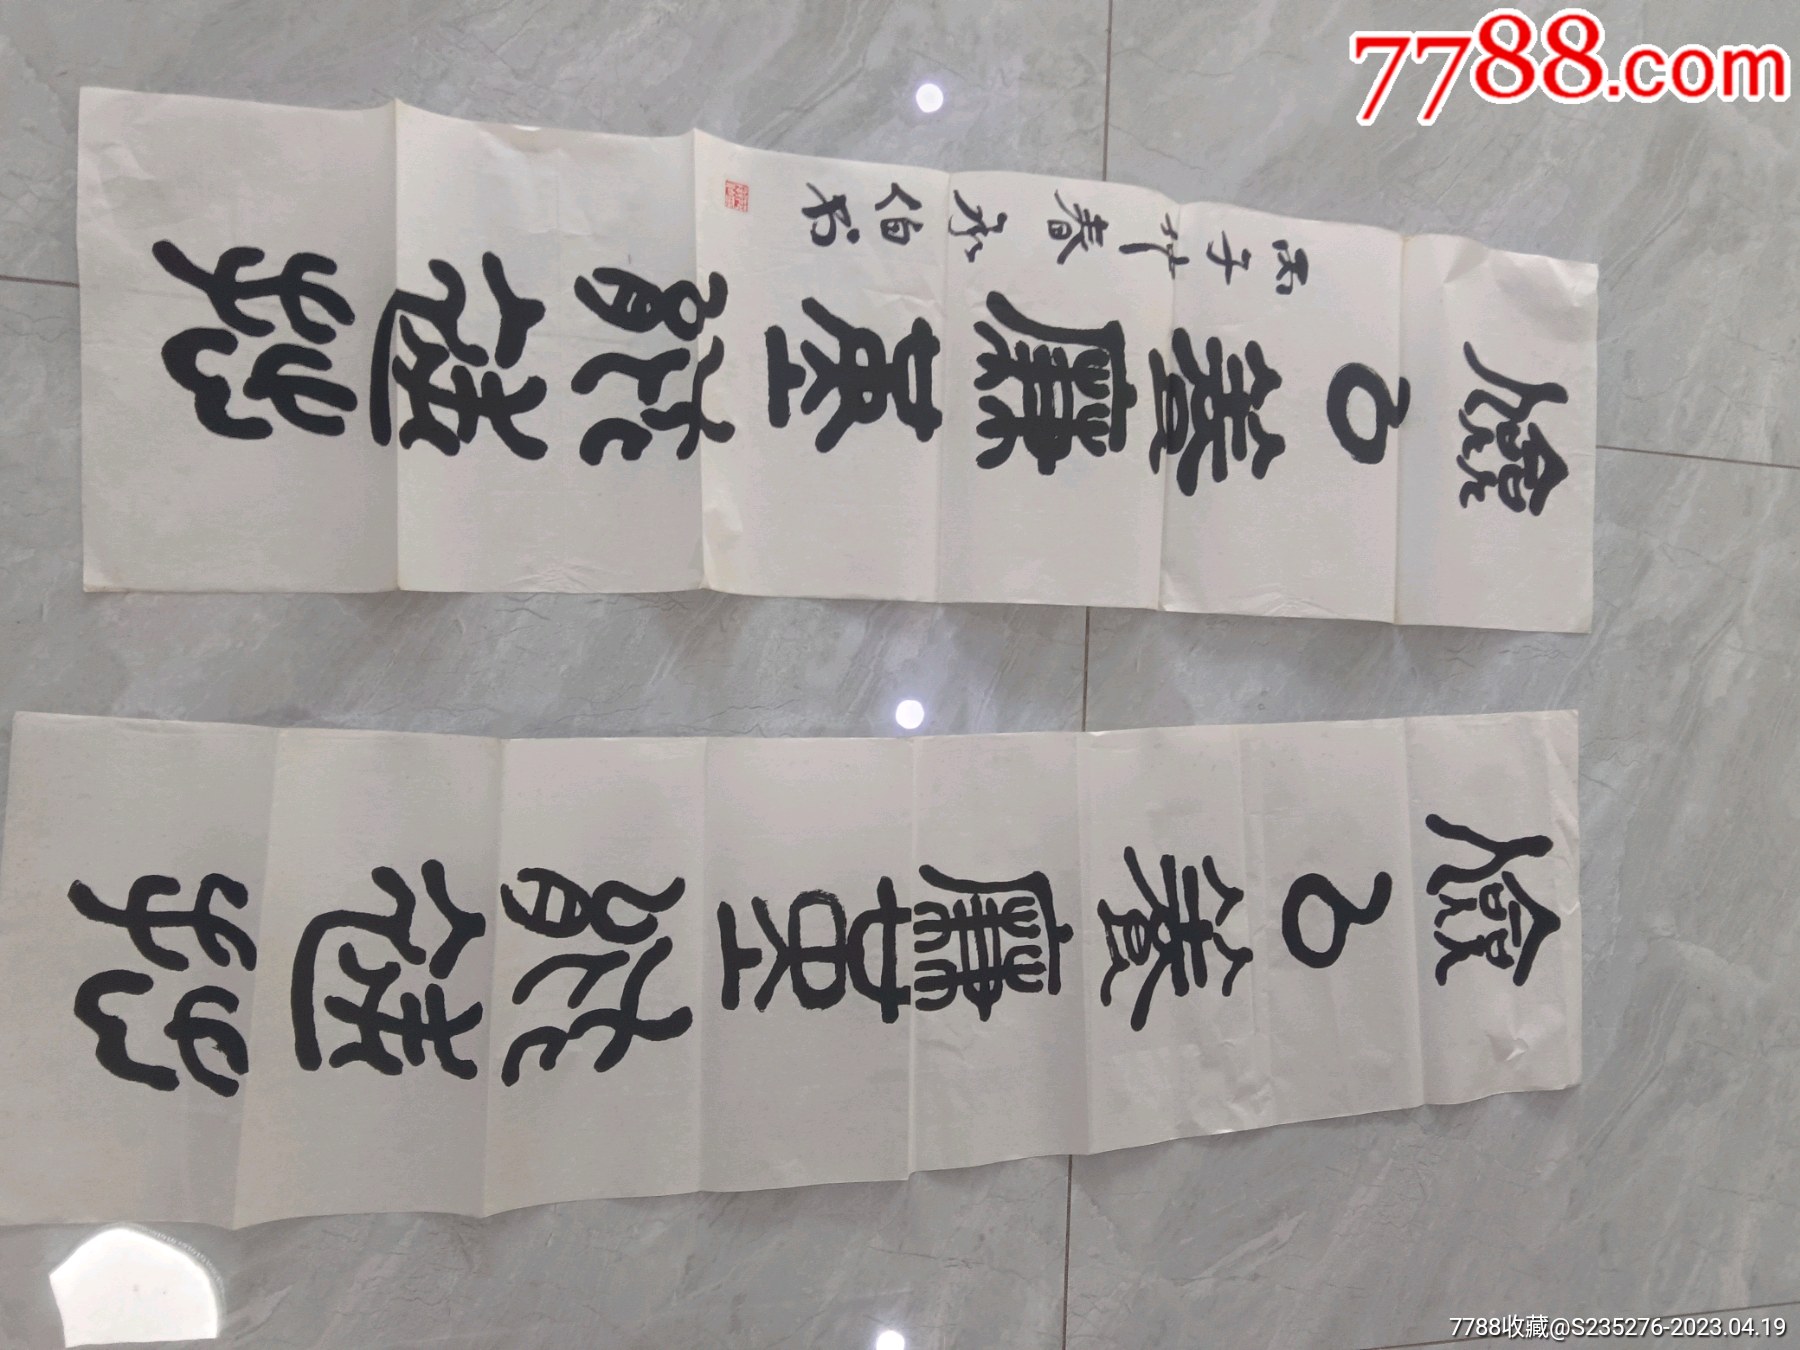 7788.com
儉以養廉堇能補拙
丙子竹春永伯书
儉以養廉堇能補拙
7788收藏@S235276-2023.04.19